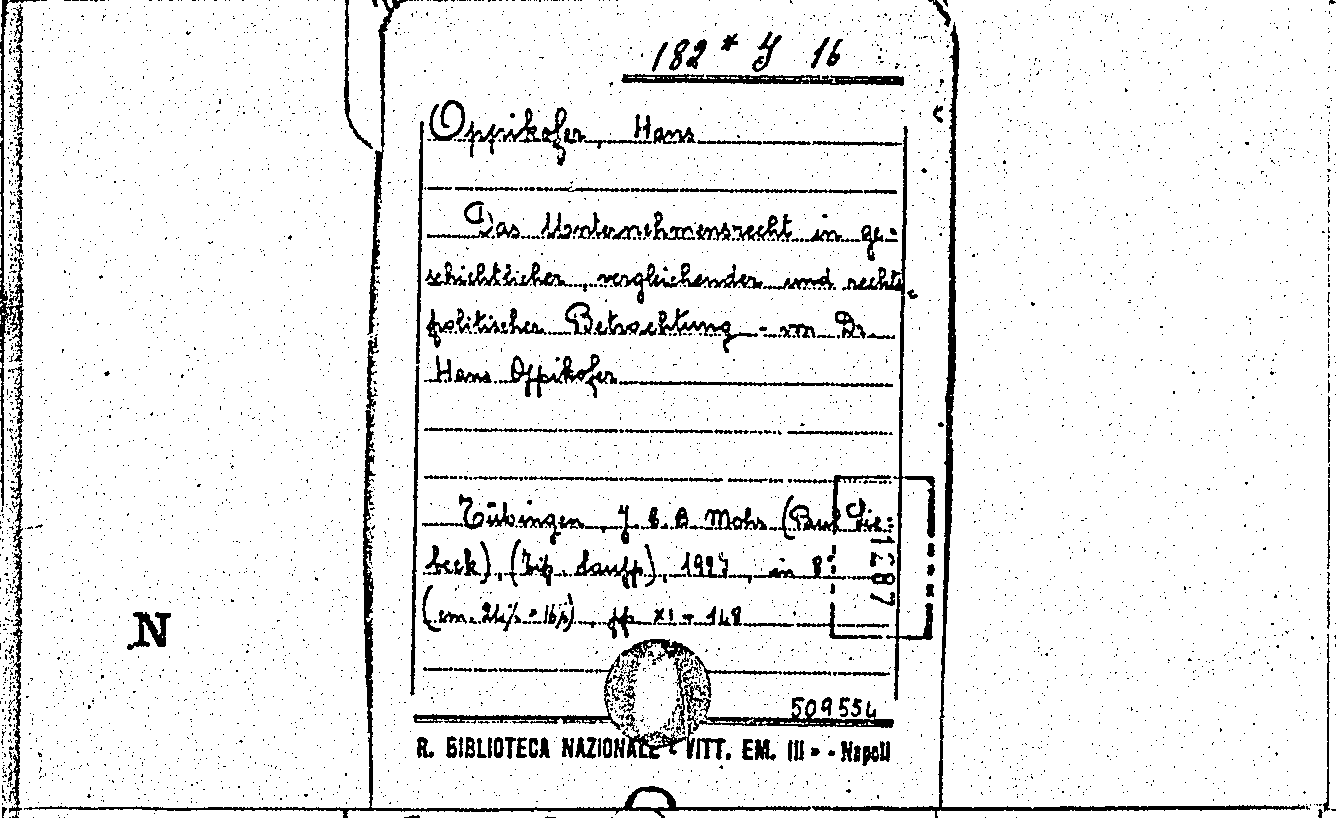 182 * J 16
Oppikofer, Hans
Das Unternehmensrecht in ge=
schichtlicher, vergleichender und rechts=
politischer Betrachtung - von Dr.
Hans Oppikofer
Tübingen, J. C. B Mohr (Paul Sie=
beck), (Tip. Laupp), 1927, in 8°
(cm. 24½ * 16½), pp XI - 148
71287
509554
N
R. BIBLIOTECA NAZIONALE « VITT. EM. III » - Napoli